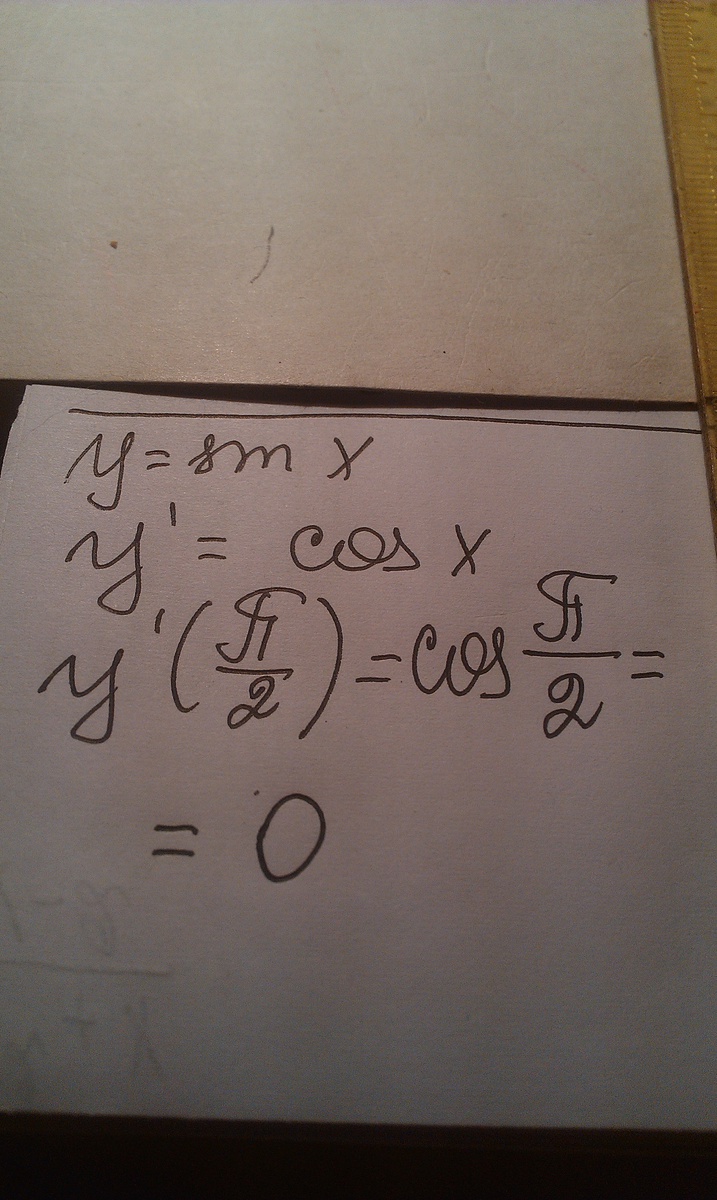 y = sin x
y' = cos x
y'(π/2) = cos π/2 =
= 0